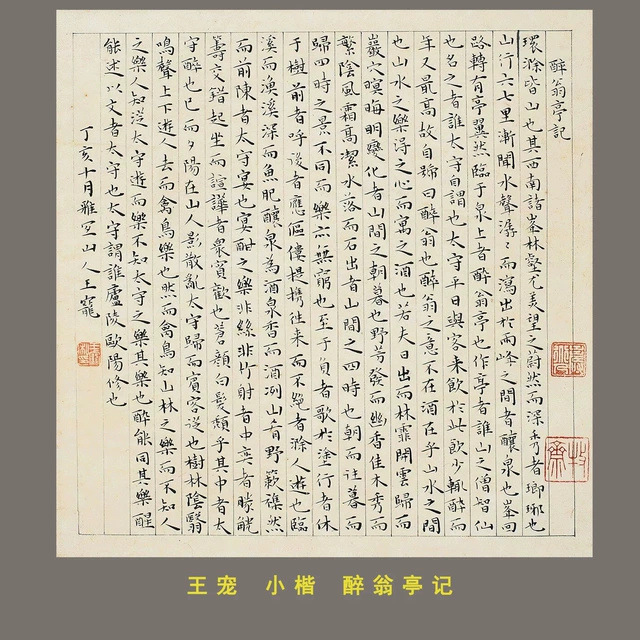 醉翁亭記
環滁皆山也其西南諸峯林壑尤美望之蔚然而深秀者瑯琊也
山行六七里漸聞水聲潺〻而瀉出於兩峰之間者釀泉也峯回
路轉有亭翼然臨于泉上者醉翁亭也作亭者誰山之僧智仙
也名之者誰太守自謂也太守平日與客来飲於此飲少輒醉而
年又最高故自號曰醉翁也醉翁之意不在酒在乎山水之間
也山水之樂淂之心而寓之酒也若夫日出而林霏開雲歸而
巖穴暝晦明變化者山間之朝暮也野芳發而幽香佳木秀而
繁陰風霜高潔水落而石出者山間之四時也朝而往暮而
歸四時之景不同而樂亦無窮也至于負者歌於塗行者休
于樹前者呼後者應傴僂提携往来而不絕者滁人遊也臨
溪而漁溪深而魚肥釀泉為酒泉香而酒洌山肴野蔌襍然
而前陳者太守宴也宴酣之樂非絲非竹射者中弈者勝觥
籌交錯起坐而諠譁者衆賓歡也蒼顏白髮頹乎其中者太
守醉也已而夕陽在山人影散亂太守歸而賓客從也樹林陰翳
鳴聲上下遊人去而禽鳥樂也然而禽鳥知山林之樂而不知人
之樂人知從太守遊而樂不知太守之樂其樂也醉能同其樂醒
能述以文者太守也太守謂誰廬陵歐陽修也
丁亥十月雅宜山人王寵
王宠 小楷 醉翁亭记